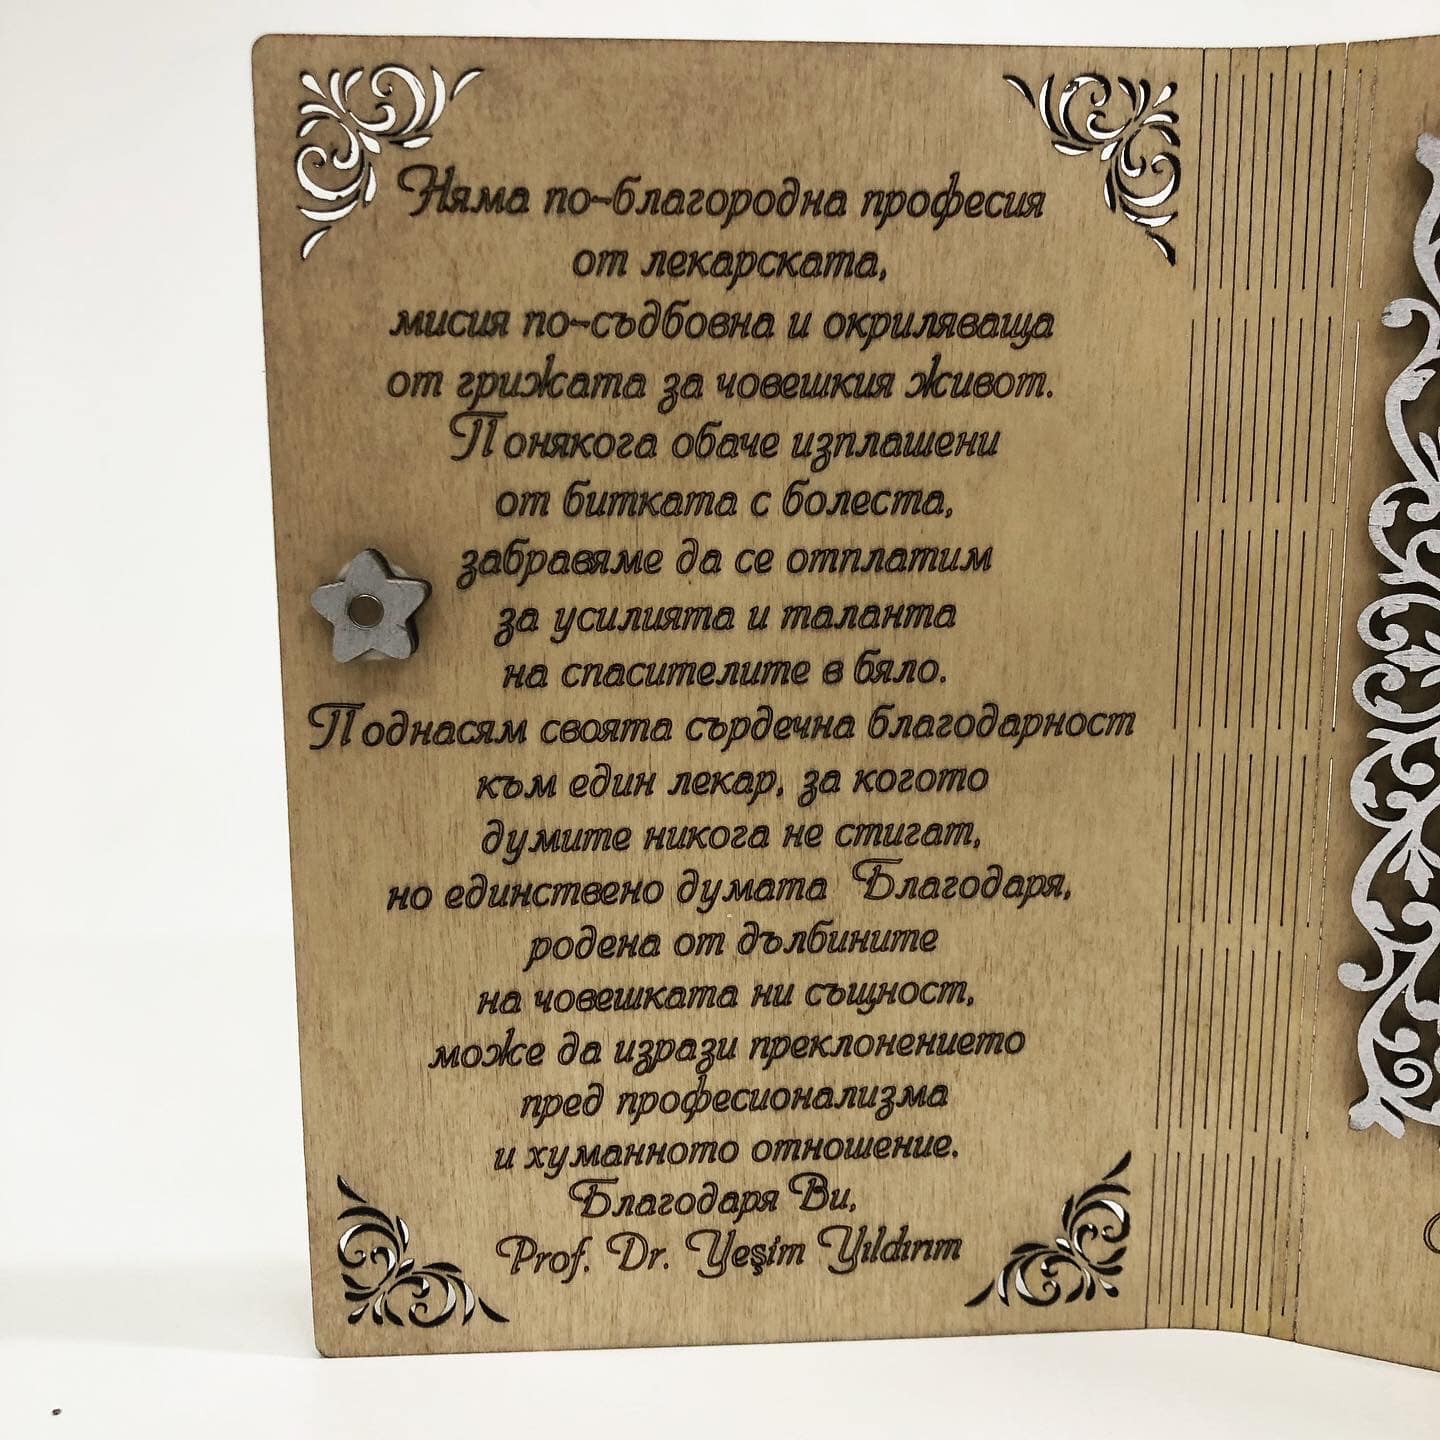 Няма по-благородна професия
от лекарската,
мисия по-съдбовна и окриляваща
от грижата за човешкия живот.
Понякога обаче изплашени
от битката с болеста,
забравяме да се отплатим
за усилията и таланта
на спасителите в бяло.
Поднасям своята сърдечна благодарност
към един лекар, за когото
думите никога не стигат,
но единствено думата Благодаря,
родена от дълбините
на човешката ни същност,
може да изрази преклонението
пред професионализма
и хуманното отношение.
Благодаря Ви,
Prof. Dr. Yeşim Yıldırım